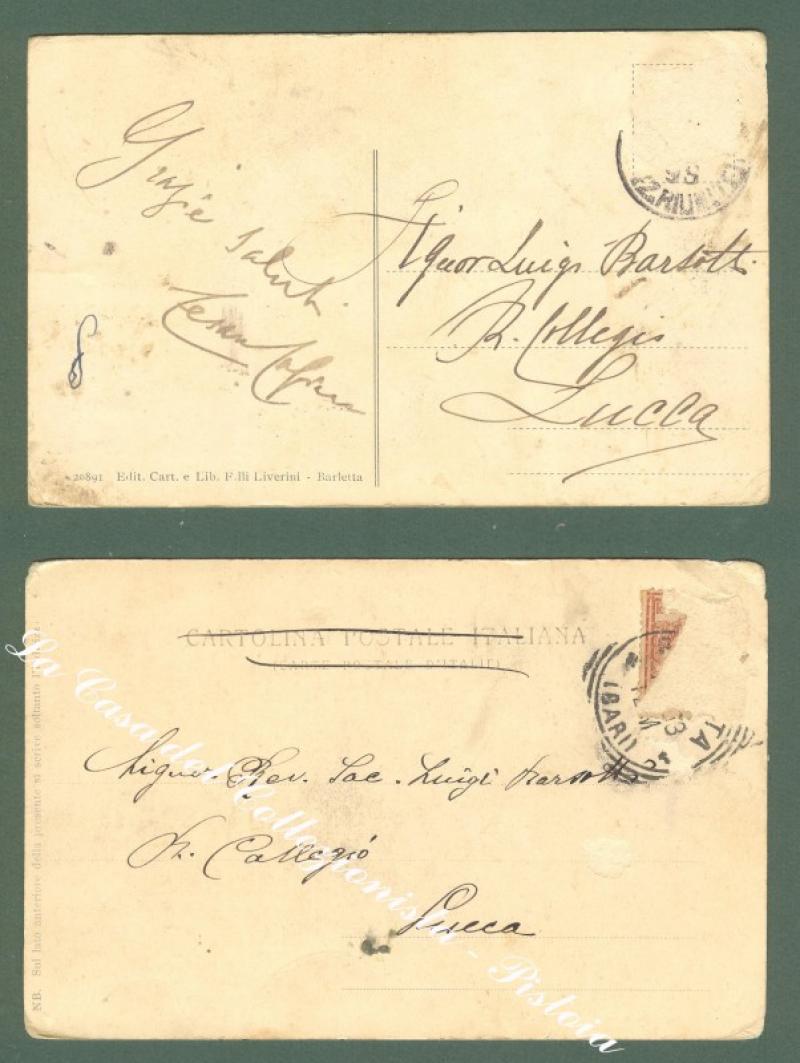 Grazie
saluti
Signor Luigi Barsotti
R. Collegio
Lucca
20891 Edit. Cart. e Lib. F.lli Liverini - Barletta
CARTOLINA POSTALE ITALIANA
(CARTE POSTALE D'ITALIE)
(BARI)
Signor Rev. Sac. Luigi Barsotti
R. Collegio
Lucca
NB. Sul lato anteriore della presente si scrive soltanto l'indirizzo.
La Casa del Collezionista - Pistoia